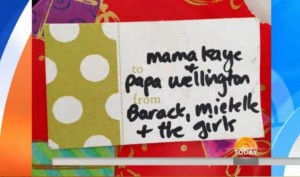 mama kaye
to +
papa wellington
from
Barack, mielelle
+ the girls
TODAY